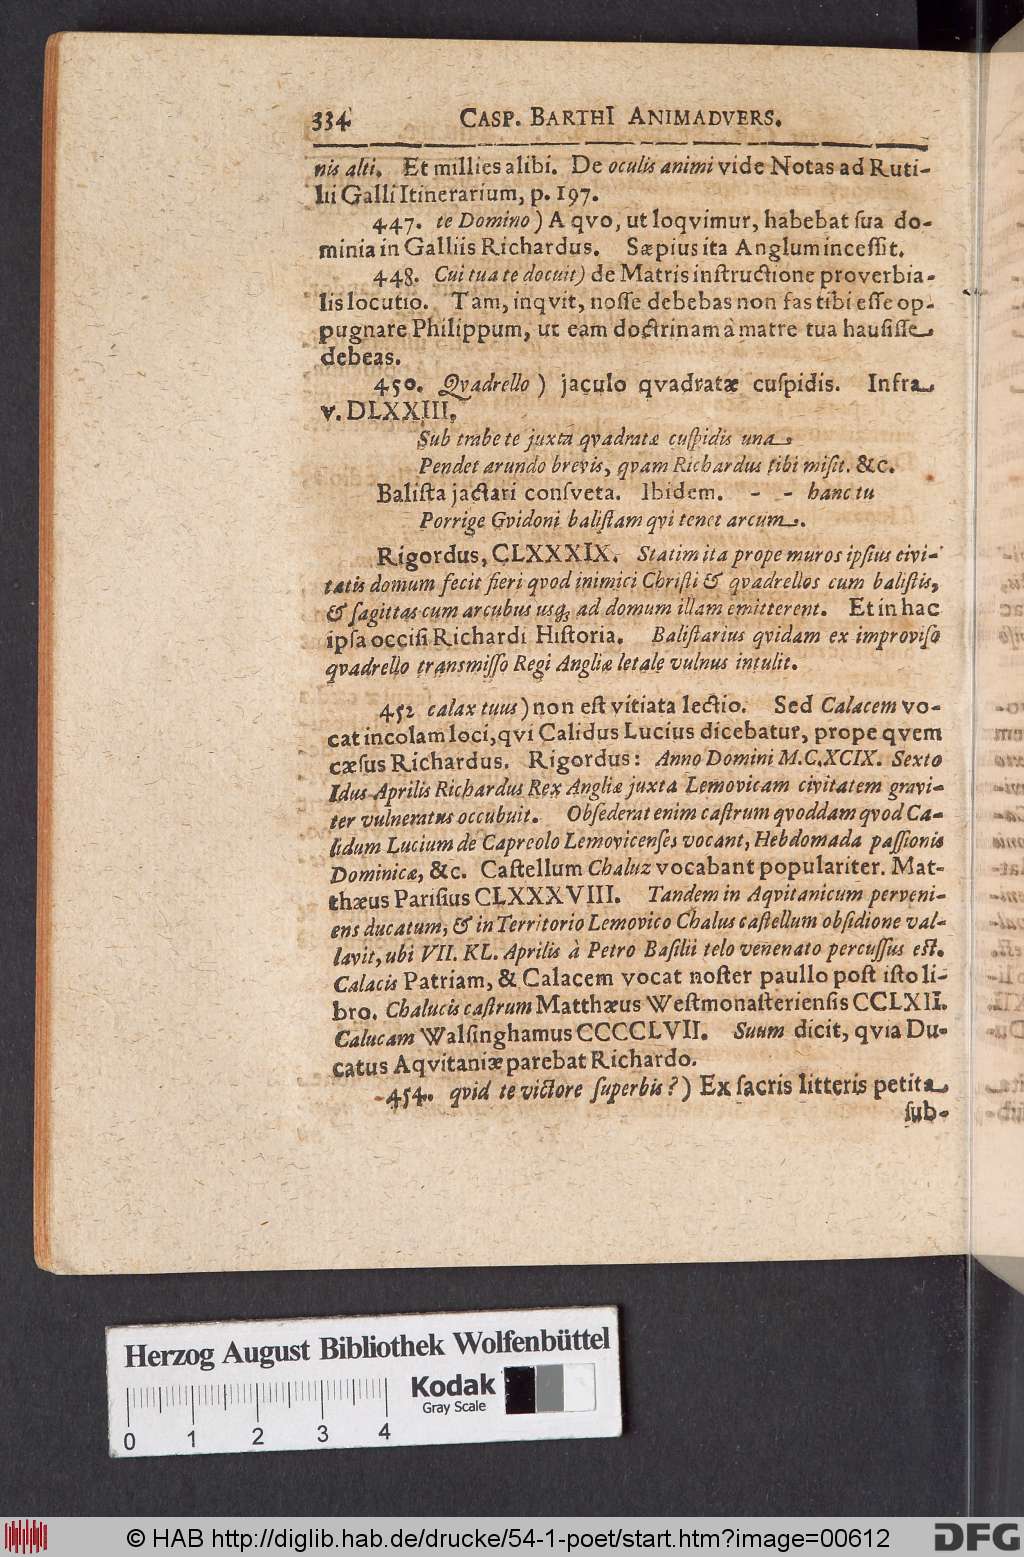 334 CASP. BARTHI ANIMADVERS.
nis alti. Et millies alibi. De oculis animi vide Notas ad Ruti-
lii Galli Itinerarium, p. 197.
447. te Domino) A qvo, ut loqvimur, habebat ſua do-
minia in Galliis Richardus. Sæpius ita Anglum inceſſit.
448. Cui tua te docuit) de Matris inſtructione proverbia-
lis locutio. Tam, inqvit, noſſe debebas non fas tibi eſſe op-
pugnare Philippum, ut eam doctrinam à matre tua hauſiſſe
debeas.
450. Qvadrello) jaculo qvadratæ cuſpidis. Infra
v. DLXXIII.
Sub trabe te juxta qvadratæ cuſpidis una
Pendet arundo brevis, qvam Richardus tibi miſit. &c.
Baliſta jactari conſveta. Ibidem. - - hanc tu
Porrige Gvidoni baliſtam qvi tenet arcum.
Rigordus, CLXXXIX. Statim ita prope muros ipſius civi-
tatis domum fecit fieri qvod inimici Chriſti & qvadrellos cum baliſtis,
& ſagittas cum arcubus usq; ad domum illam emitterent. Et in hac
ipſa occiſi Richardi Hiſtoria. Baliſtarius qvidam ex improviſo
qvadrello transmiſſo Regi Angliæ letale vulnus intulit.
452 calax tuus) non eſt vitiata lectio. Sed Calacem vo-
cat incolam loci, qvi Calidus Lucius dicebatur, prope qvem
cæſus Richardus. Rigordus: Anno Domini M.C.XCIX. Sexto
Idus Aprilis Richardus Rex Angliæ juxta Lemovicam civitatem gravi-
ter vulneratus occubuit. Obſederat enim caſtrum qvoddam qvod Ca-
lidum Lucium de Capreolo Lemovicenſes vocant, Hebdomada paſſionis
Dominicæ, &c. Caſtellum Chaluz vocabant populariter. Mat-
thæus Pariſius CLXXXVIII. Tandem in Aqvitanicum perveni-
ens ducatum, & in Territorio Lemovico Chalus caſtellum obſidione val-
lavit, ubi VII. KL. Aprilis à Petro Baſilii telo venenato percuſſus eſt.
Calacis Patriam, & Calacem vocat noſter paullo poſt iſto li-
bro. Chalucis caſtrum Matthæus Weſtmonaſterienſis CCLXII.
Calucam Walſinghamus CCCCLVII. Suum dicit, qvia Du-
catus Aqvitaniæ parebat Richardo.
454. qvid te victore ſuperbis?) Ex ſacris litteris petita
ſub-
Herzog August Bibliothek Wolfenbüttel
Kodak
Gray Scale
0 1 2 3 4
© HAB http://diglib.hab.de/drucke/54-1-poet/start.htm?image=00612
DFG